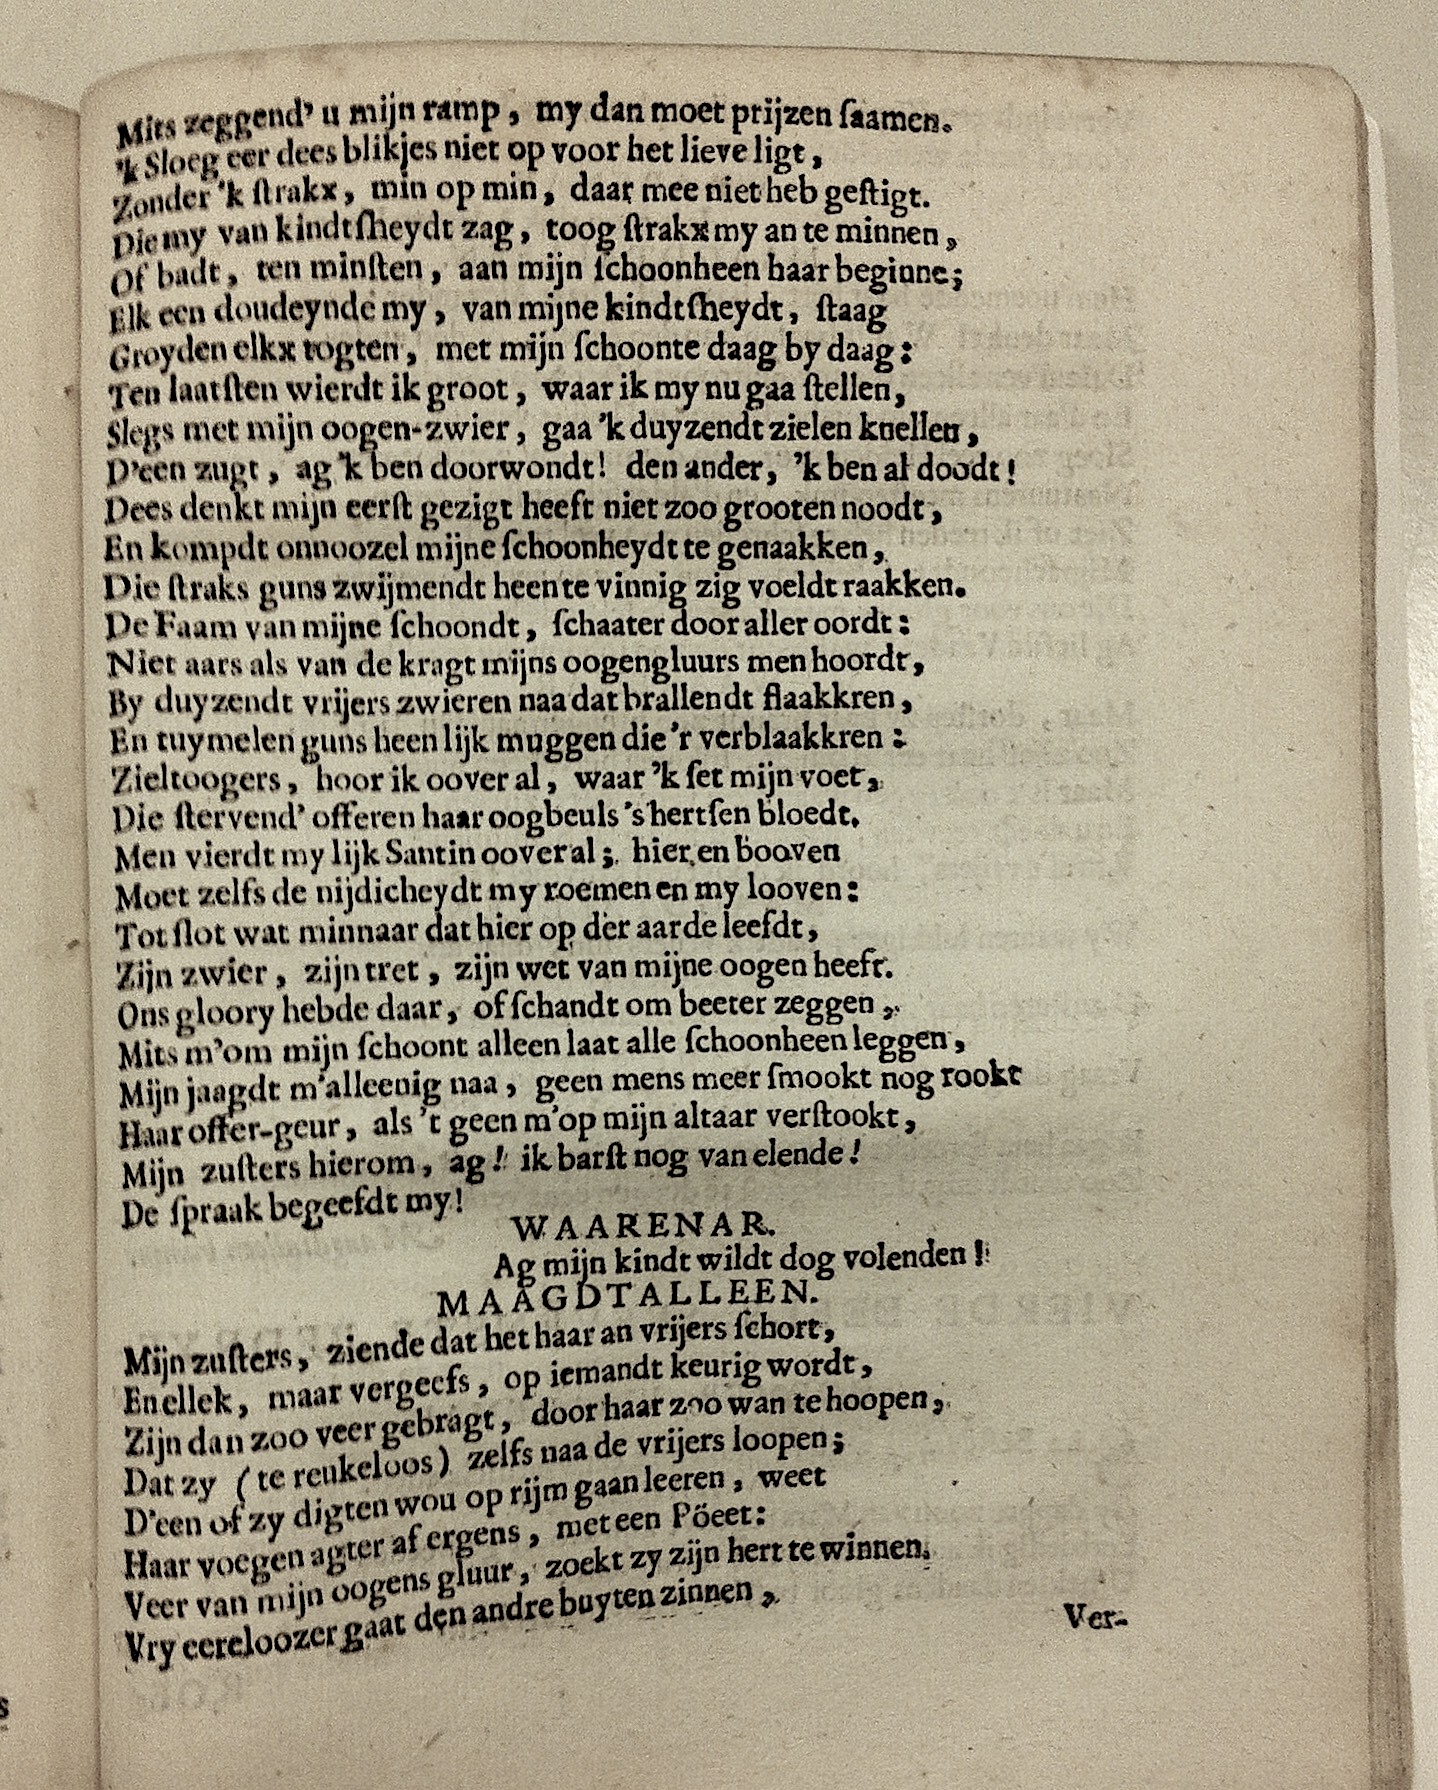 Mits zeggend' u mijn ramp, my dan moet prijzen ſaamen.
'k Sloeg eer dees blikjes niet op voor het lieve ligt,
Zonder 'k ſtrakx, min op min, daar mee niet heb geſtigt.
Die my van kindtſheydt zag, toog ſtrakx my an te minnen,
Of badt, ten minſten, aan mijn ſchoonheen haar beginne;
Elk een doudeynde my, van mijne kindtſheydt, ſtaag
Groyden elkx togten, met mijn ſchoonte daag by daag:
Ten laatſten wierdt ik groot, waar ik my nu gaa ſtellen,
Slegs met mijn oogen-zwier, gaa 'k duyzendt zielen knellen,
D'een zugt, ag 'k ben doorwondt! den ander, 'k ben al doodt!
Dees denkt mijn eerſt gezigt heeft niet zoo grooten noodt,
En kompdt onnoozel mijne ſchoonheydt te genaakken,
Die ſtraks guns zwijmendt heen te vinnig zig voeldt raakken.
De Faam van mijne ſchoondt, ſchaater door aller oordt:
Niet aars als van de kragt mijns oogengluurs men hoordt,
By duyzendt vrijers zwieren naa dat brallendt flaakkren,
En tuymelen guns heen lijk muggen die 'r verblaakkren:
Zieltoogers, hoor ik oover al, waar 'k ſet mijn voet,
Die ſtervend' offeren haar oogbeuls 's hertſen bloedt.
Men vierdt my lijk Santin oover al; hier en booven
Moet zelfs de nijdicheydt my roemen en my looven:
Tot ſlot wat minnaar dat hier op der aarde leefdt,
Zijn zwier, zijn tret, zijn wet van mijne oogen heeft.
Ons gloory hebde daar, of ſchandt om beeter zeggen,
Mits m'om mijn ſchoont alleen laat alle ſchoonheen leggen,
Mijn jaagdt m'alleenig naa, geen mens meer ſmookt nog rookt
Haar offer-geur, als 't geen m'op mijn altaar verſtookt,
Mijn zuſters hierom, ag! ik barſt nog van elende!
De ſpraak begeefdt my!
WAARENAR.
Ag mijn kindt wildt dog volenden!
MAAGDTALLEEN.
Mijn zuſters, ziende dat het haar an vrijers ſchort,
En ellek, maar vergeefs, op iemandt keurig wordt,
Zijn dan zoo veer gebragt, door haar zoo wan te hoopen,
Dat zy (te reukeloos) zelfs naa de vrijers loopen;
D'een of zy digten wou op rijm gaan leeren, weet
Haar voegen agter af ergens, met een Pöeet:
Veer van mijn oogens gluur, zoekt zy zijn hert te winnen.
Vry eereloozer gaat den andre buyten zinnen,
Ver-
s